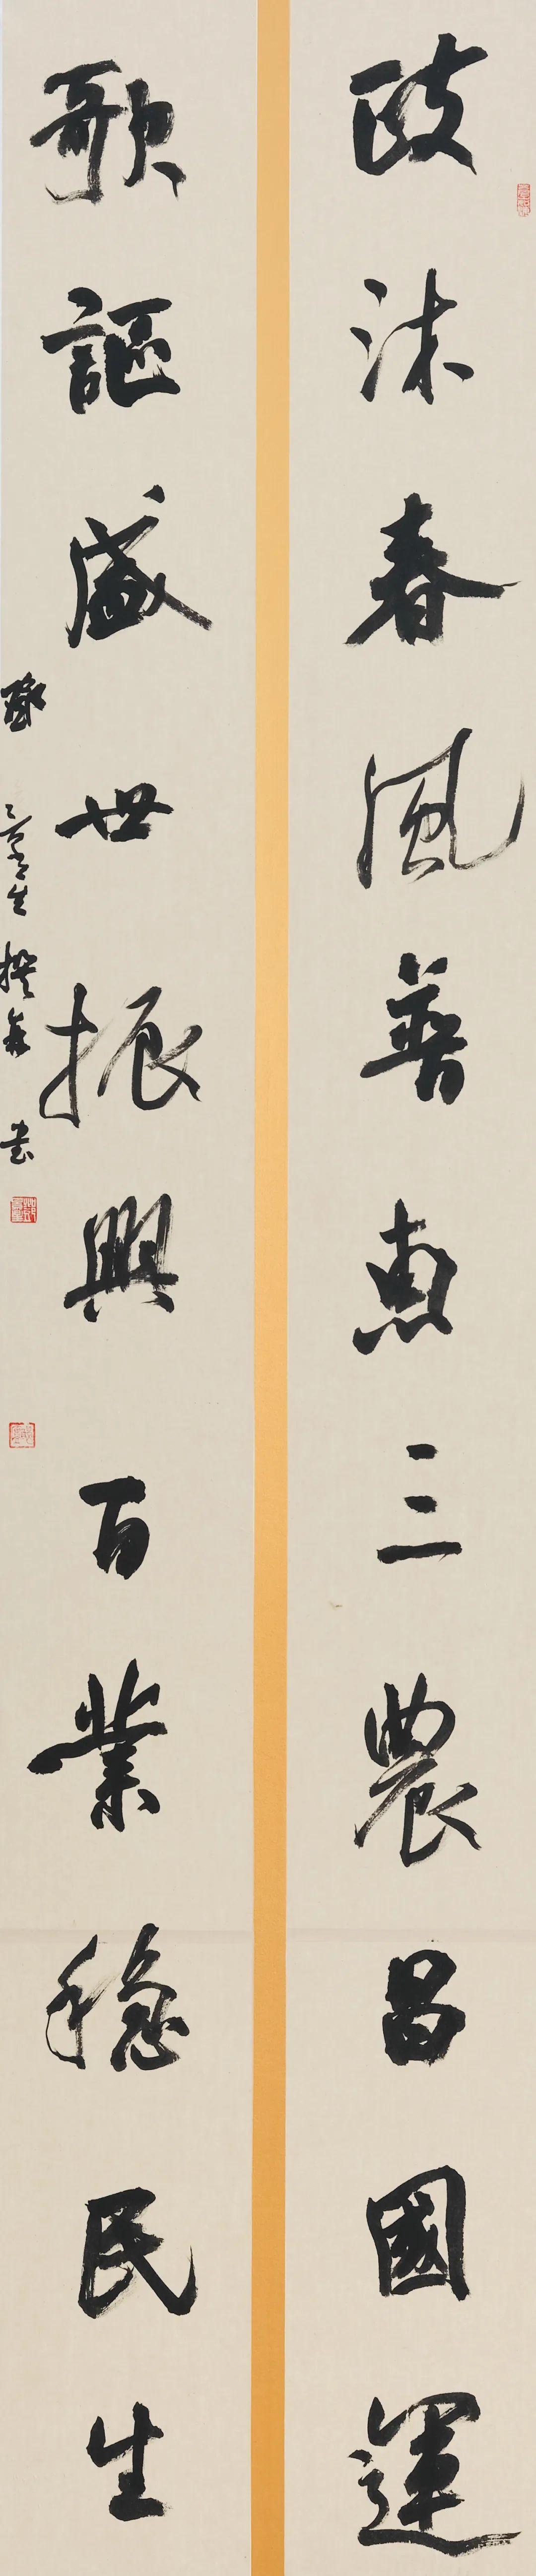 政沐春风普惠三農昌國運
歌謳盛世振興百業穩民生
撰并書